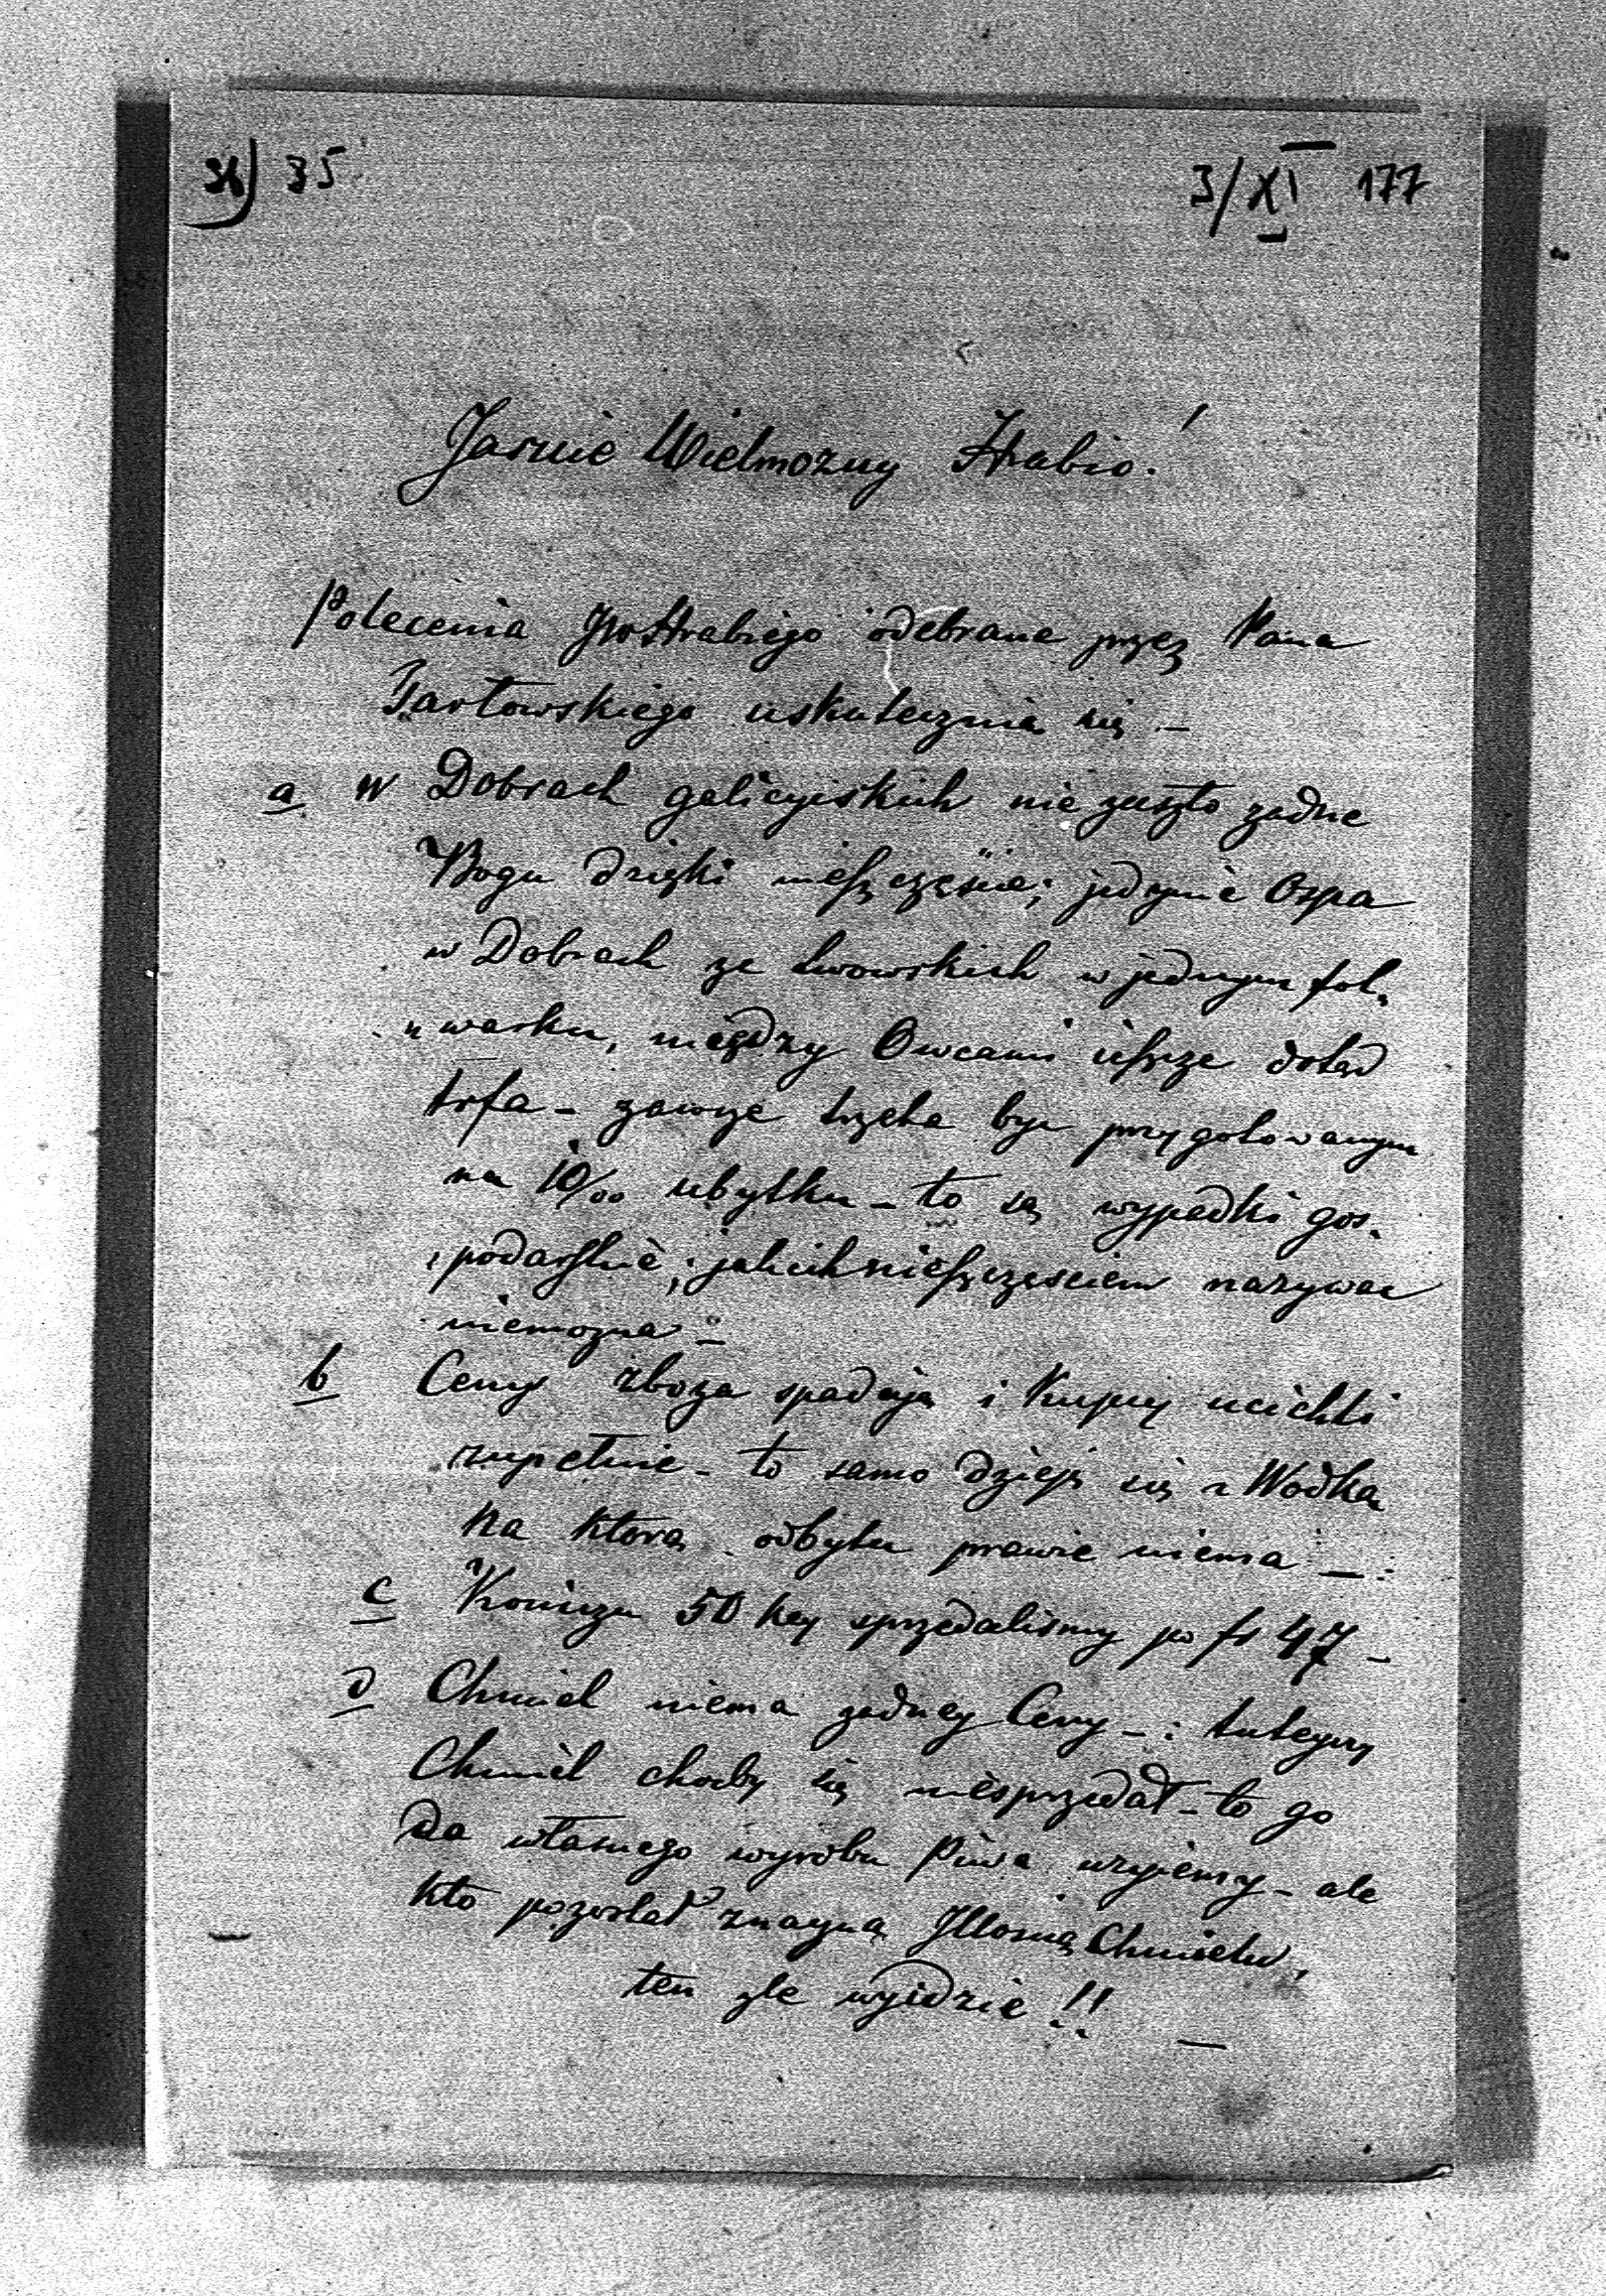 36) 35 3/XI 177
Jasnie Wielmozny Hrabio!
Polecenia JWHrabiego odebrane przez Pana
Tarłowskiego uskutecznią się —
a w Dobrach galicyiskich nie zaszło zadne
Bogu dzięki nieszczęście; jedynie Ospa
w Dobrach ze Lwowskich w jednym fol„
„warku, między Owcami ieszcze dotąd
trfa — zawsze trzeba byc przygotowanym
na 10/00 ubytku — to są wypadki gos„
„podarskie, jakich nieszczęsciem nazywac
niemozna —
b Ceny zboza spadają i Kupcy ucichli
zupełnie — to samo dzieje się z Wodką
na ktorą odbytu prawie niema —
c Koniczu 50 kcy sprzedalismy po fr 47 —
d Chmiel niema zadney Ceny —: tuteyszy
Chmiel chocby się niesprzedał — to go
do własnego wyrobu Piwa uzyiemy — ale
kto pozostał znaczną Jllosią Chmielu,
ten zle wyidzie !! —